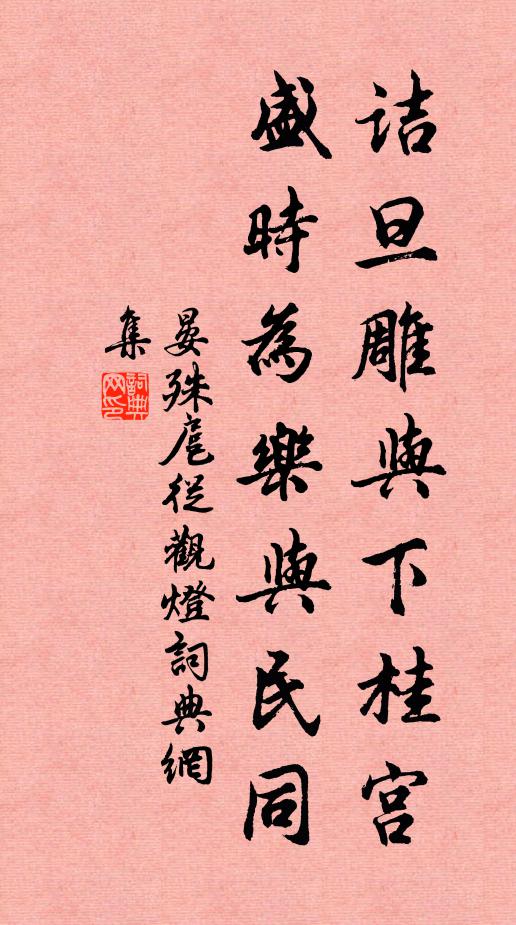 詰旦雕與下桂宮
盛時為樂與民同
晏殊扈從觀燈詞典網
集
詞典網印